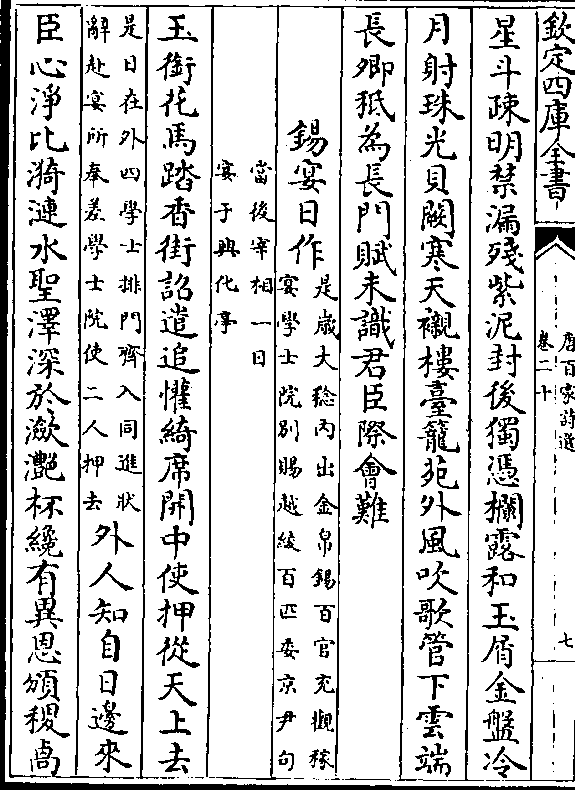 欽定四庫全書
唐百家詩選
卷二十
七
星斗疎明禁漏殘紫泥封後獨憑欄露和玉屑金盤冷
月射珠光貝闕寒天襯樓臺籠苑外風吹歌管下雲端
長卿秪為長門賦未識君臣際會難
錫宴日作
是歲大稔内出金帛錫百官充觀稼
宴學士院别賜越綾百匹委京尹句
當後宰相一日
宴于興化亭
玉銜花馬踏香街詔遣追懽綺席開中使押從天上去
是日在外四學士排門齊入同進狀
辭赴宴所奉差學士院使二人押去
外人知自日邊來
臣心淨比漪漣水聖澤深於瀲灩杯纔有異恩頒稷卨